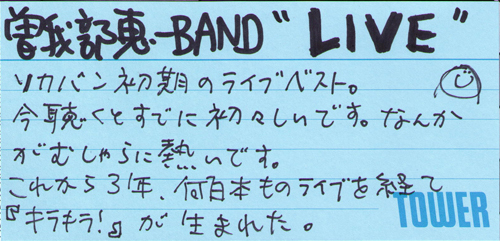 曽我部恵一BAND "LIVE"
ソカバン初期のライブベスト。
今聴くとすでに初々しいです。なんか
がむしゃらに熱いです。
これから31年、何百本ものライブを経て
『キラキラ!』が生まれた。
TOWER